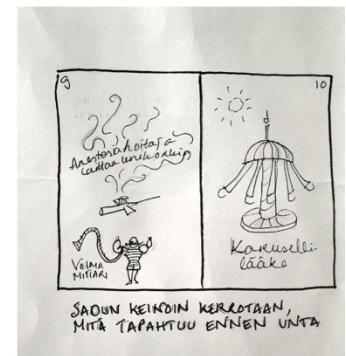 9
Anestesiahoitaja
laittaa
VOIMA
MITTARI
10
Karuselli
lääke
SADUN KEINOIN KERROTAAN,
MITÄ TAPAHTUU ENNEN UNTA